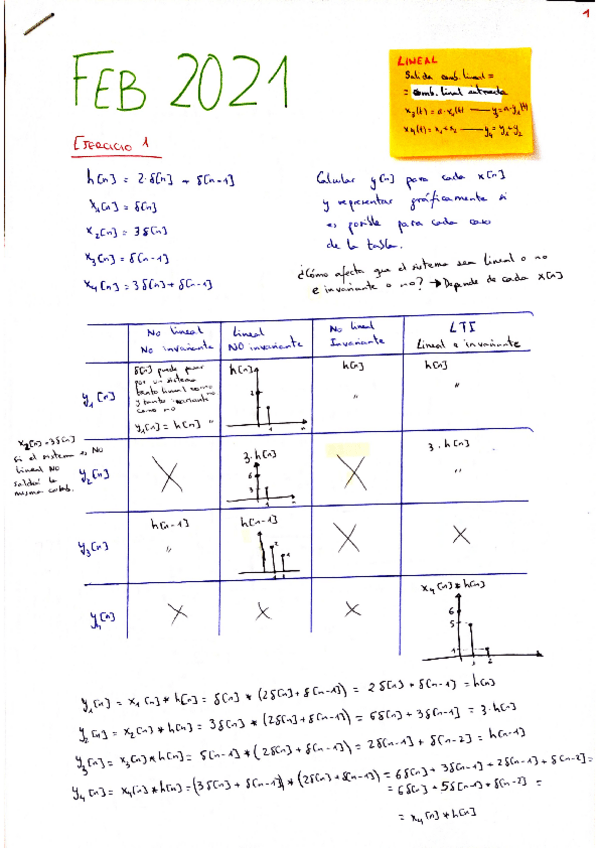 1
FEB 2021
LINEAL
Salida comb. lineal =
= comb. lineal entrada
x₃(t) = a·x₁(t) —— y₃ = a·y₁(t)
x₄(t) = x₁ + x₂ —— y₄ = y₁ + y₂
EJERCICIO 1
h[n] = 2·δ[n] + δ[n-1]
x₁[n] = δ[n]
x₂[n] = 3δ[n]
x₃[n] = δ[n-1]
x₄[n] = 3δ[n] + δ[n-1]
Calcular y[n] para cada x[n]
y representar gráficamente si
es posible para cada caso
de la tabla.
¿Cómo afecta que el sistema sea lineal o no
e invariante o no? → Depende de cada x[n]
No lineal
No invariante
Lineal
NO invariante
No lineal
Invariante
LTI
Lineal e invariante
y₁[n]
δ[n] puede pasar
por un sistema
tanto lineal como
y tanto invariante
como no
y₁[n] = h[n] "
h[n]
2
1
n
h[n]
"
h[n]
"
x₂[n] = 3δ[n]
si el sistema es NO
lineal NO
saldrá la
misma comb.
y₂[n]
3·h[n]
6
3
n
3·h[n]
"
y₃[n]
h[n-1]
"
h[n-1]
2
1
y₄[n]
x₄[n] * h[n]
6
5
1
1 2
y₁[n] = x₁[n] * h[n] = δ[n] * (2δ[n] + δ[n-1]) = 2δ[n] + δ[n-1] = h[n]
y₂[n] = x₂[n] * h[n] = 3δ[n] * (2δ[n] + δ[n-1]) = 6δ[n] + 3δ[n-1] = 3·h[n]
y₃[n] = x₃[n] * h[n] = δ[n-1] * (2δ[n] + δ[n-1]) = 2δ[n-1] + δ[n-2] = h[n-1]
y₄[n] = x₄[n] * h[n] = (3δ[n] + δ[n-1]) * (2δ[n] + δ[n-1]) = 6δ[n] + 3δ[n-1] + 2δ[n-1] + δ[n-2] =
= 6δ[n] + 5δ[n-1] + δ[n-2] =
= x₄[n] * h[n]